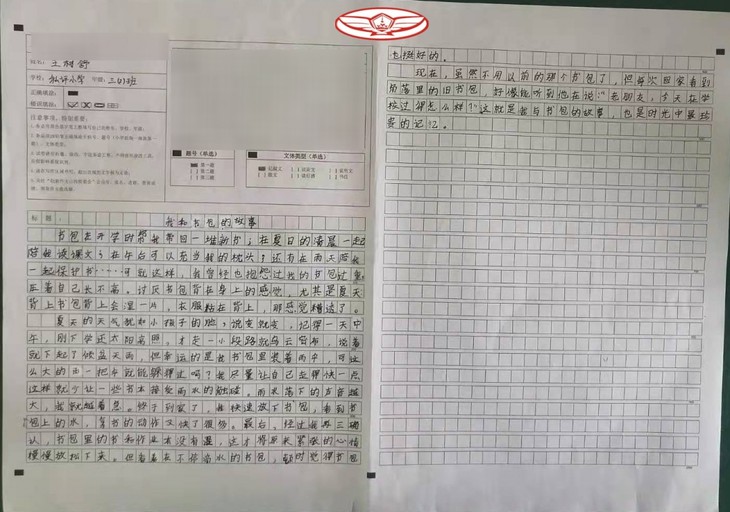 姓名：王树舒
学校：私评小学 年级：三(1)班
正确填涂：
错误填涂：
注意事项，特别重要：
题号（单选）
第一题
第二题
第三题
文体类型（单选）
记叙文
散文
标题：
我和书包的故事
书包在开学时帮我带回一堆新书；在夏日的清晨一起
陪我读课文；在午后可以充当我的枕头；还有在雨天陪我
一起保护书……可就这样，我曾经也抱怨过我的书包过重，
压着自己长不高。讨厌书包背在身上的感觉，尤其是夏天
背上书包背上会湿一片，衣服粘在背上，那感觉糟透了。
夏天的天气就如小孩子的脸，说变就变，记得一天中
午，刚下学还太阳高照，才走一小段路就乌云密布，说着
就下起了倾盆大雨，但幸运的是我书包里装着雨伞，可这
么大的雨一把伞就能躲得过吗？我尽量让自己走得快一点
这样就少让一些书本接受雨水的触碰。雨水落下的声音越
大，我就越着急。终于到家了，我快速放下书包，看到书
包上的水，拿书的动作又快了很多。最后，经过我再三确
认，书包里的书和作业本没有湿，这才将原来紧张的心情
慢慢放松下来。但看着在不停滴水的书包，顿时觉得书包
也挺好的。
现在，虽然不用以前的那个书包了，但每次回家看到
角落里的旧书包，好像能听到他在说：“老朋友，今天在学
校过得怎么样？”这就是我与书包的故事，也是时光中最珍
贵的记忆。